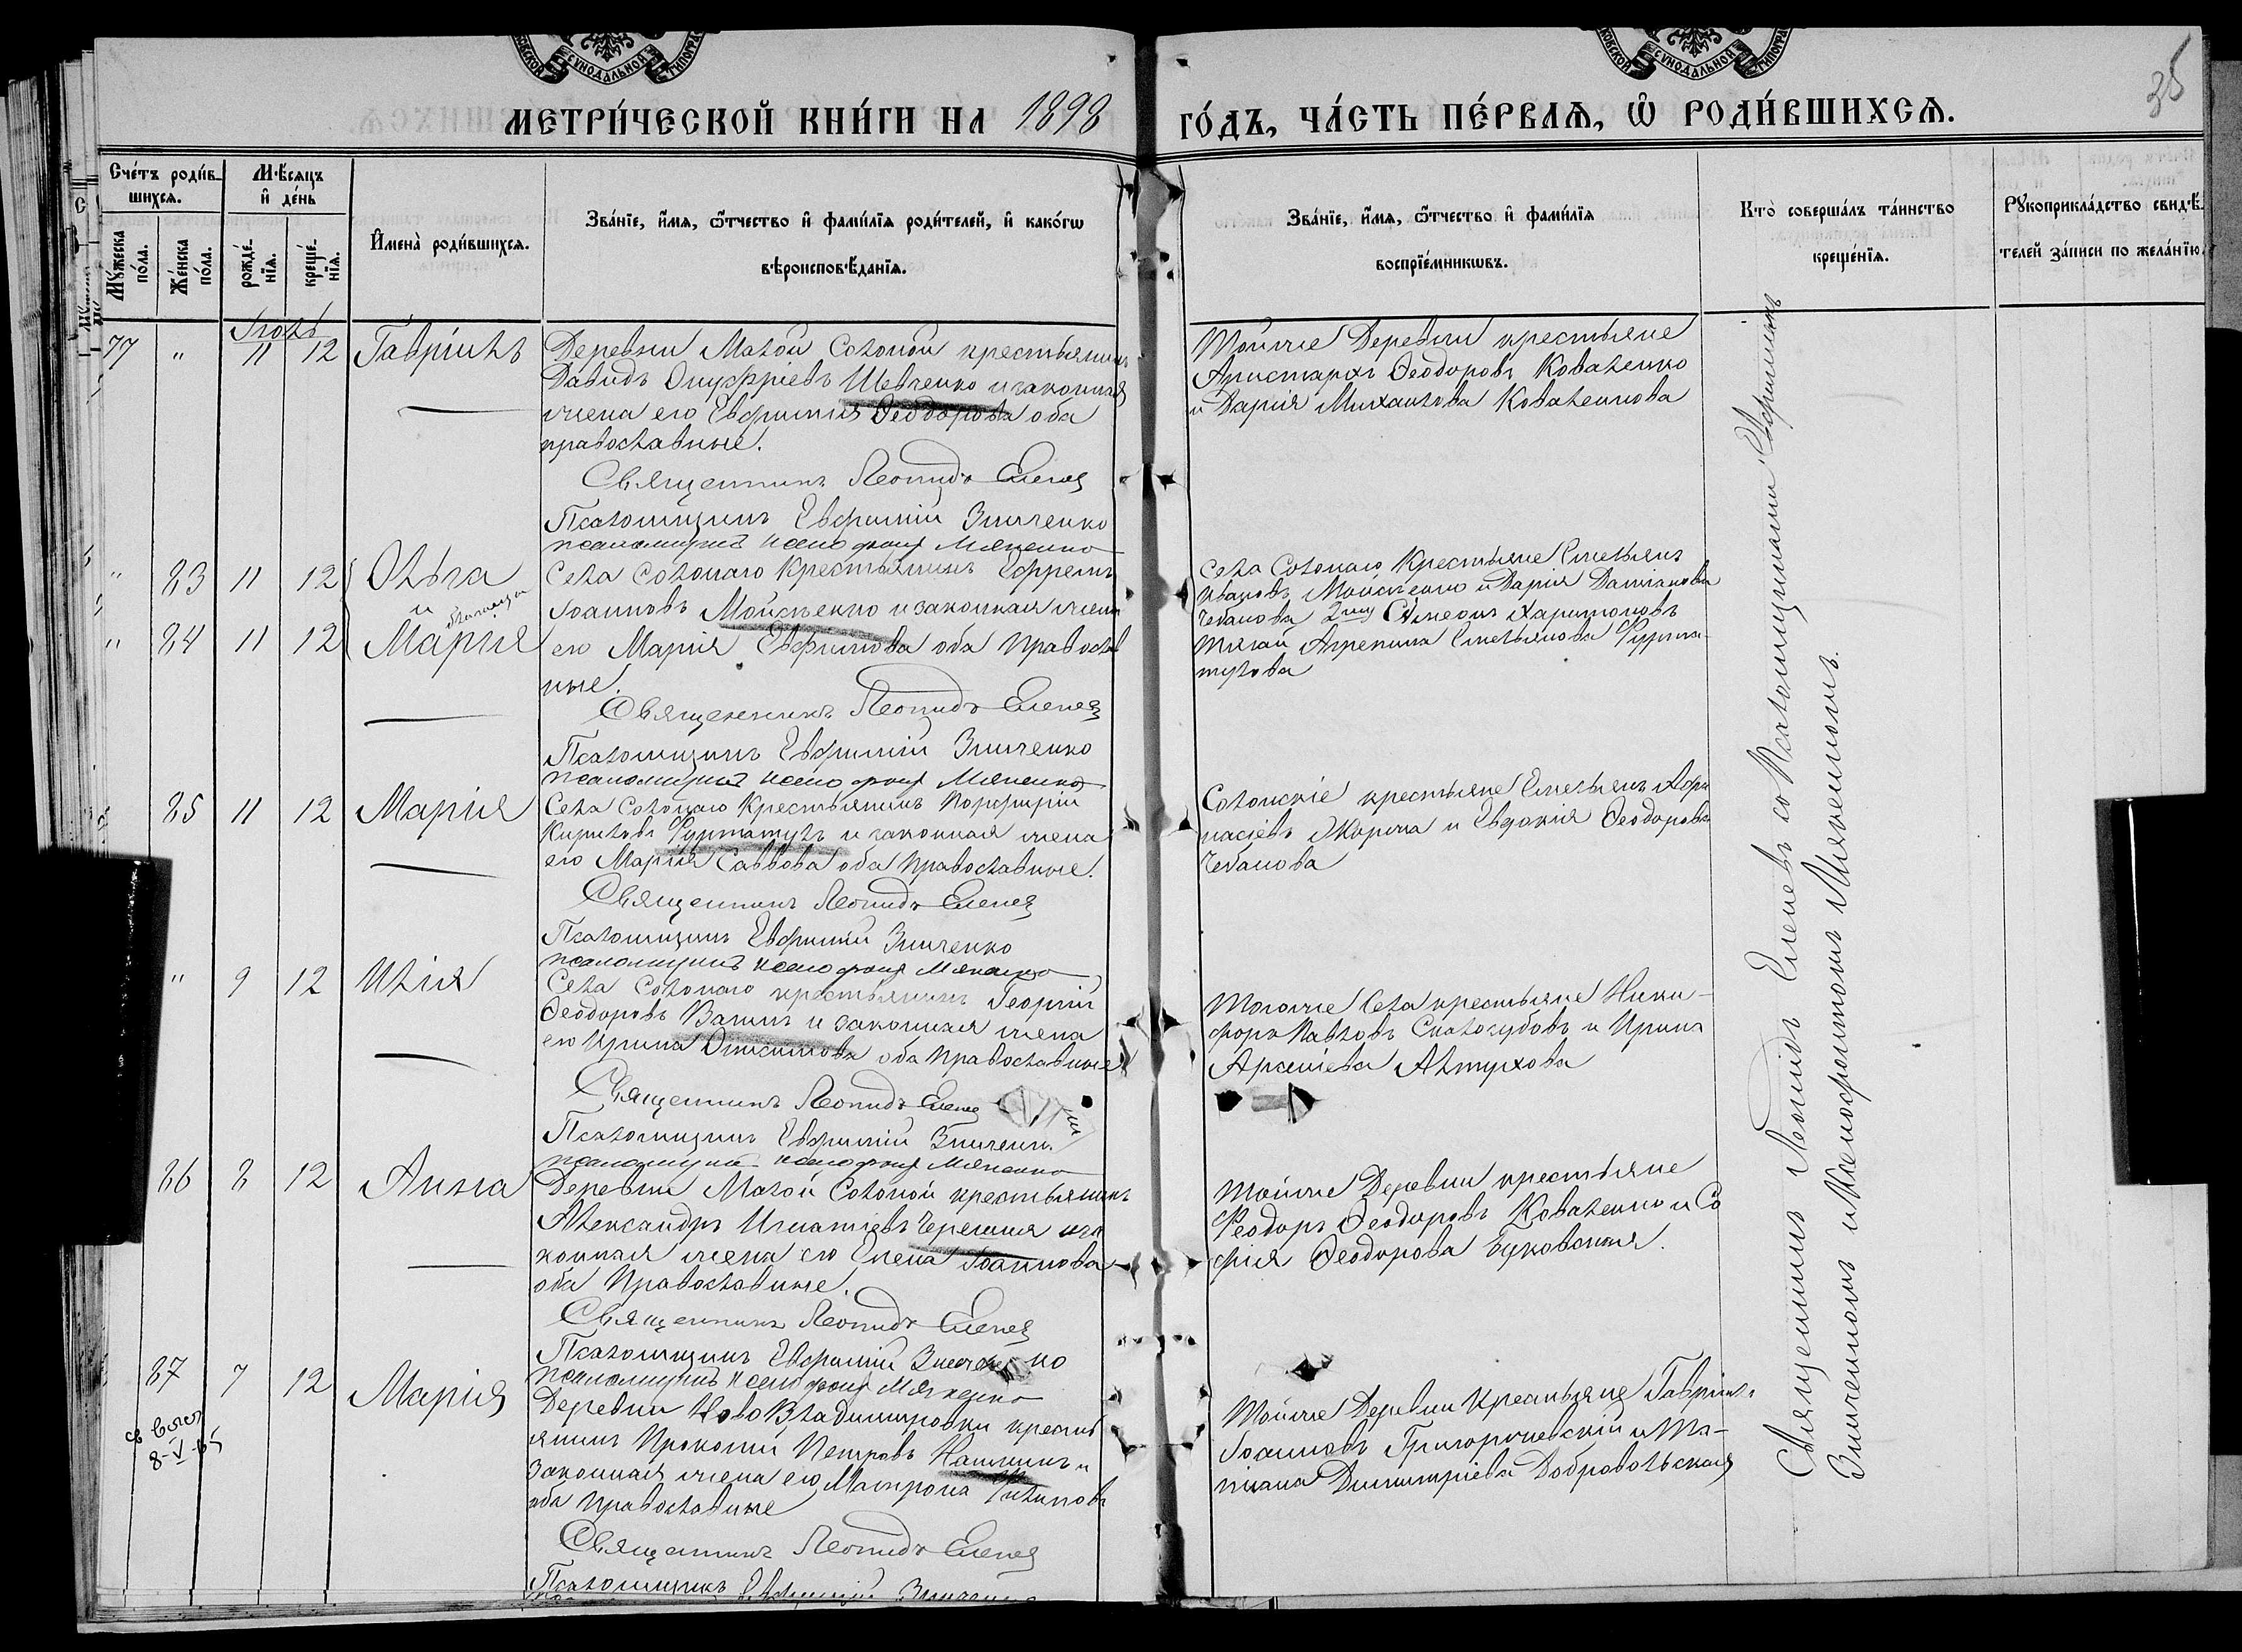 МЕТРИ́ЧЕСКОЙ КНИ́ГИ НА 1898
ГО́ДЪ, ЧА́СТЬ ПЕ́РВАѦ, Ѿ РОДИ́ВШИХСѦ.
35
Сче́тъ роди́в-
шихсѧ.
Мꙋ́жеска
по́ла.
Же́нска
по́ла.
Мѣ́сѧцъ
и҆ де́нь
рожде́-
нїѧ.
креще́-
нїѧ.
И҆мена̀ роди́вшихсѧ.
Зва́нїе, и҆́мѧ, ѻ҆́тчество и҆ фами́лїѧ роди́телей, и҆ како́гѡ
вѣроисповѣ́данїѧ.
Зва́нїе, и҆́мѧ, ѻ҆́тчество и҆ фами́лїѧ
воспрїе́мникѡвъ.
Кто̀ соверша́лъ та́инство
креще́нїѧ.
Рꙋкоприкла́дство свидѣ́-
телей за́писи по жела́нїю.
77 " 11 12 Гавріилъ
Деревни Малой Солоной крестьянинъ
Давидъ Онуфріевъ Шевченко и законная
жена его Евфимия Ѳеодорова оба
православные.
Священникъ Леонидъ Еленев
Псаломщикъ Евфимій Зинченко
псаломщикъ Ксенофонт Мякенко
Тойже Деревни крестьяне
Аристархъ Ѳеодоровъ Коваленко
и Дарія Михаилова Коваленкова
" 83 11 12 Ольга
и близнецы
" 84 11 12 Марія
Села Солонаго Крестьянинъ Ефремъ
Іоанновъ Мойсѣенко и законная жена
его Марія Евфимова оба Православ
ные.
Священникъ Леонидъ Еленев
Псаломщикъ Евфимій Зинченко
псаломщикъ Ксенофонт Мякенко
Села Солонаго Крестьяне Емельянъ
Ивановъ Мойсѣенко и Дарія Даміанова
Чебанова 2й Симеонъ Харитоновъ
Агрепина Емельянова
85 11 12 Марія
Села Солонаго Крестьянинъ Порфирій
Кириловъ и законная жена
его Марія Саввова оба Православные.
Священникъ Леонидъ Еленев
Псаломщикъ Евфимій Зинченко
псаломщикъ Ксенофонт Мякенко
Солонскіе крестьяне Емельянъ Афа
насіевъ и Евдокія Ѳеодорова
Чебанова
" 9 12 Илія
Села Солонаго крестьянинъ Георгій
Ѳеодоровъ и законная жена
его Ирина Онисимова оба Православные
Священникъ Леонидъ Еленев
Псаломщикъ Евфимій Зинченко
псаломщикъ Ксенофонт Мякенко
Тогоже Села крестьяне Ники-
форъ Павловъ Скалозубовъ и Ирина
Арсеніева Алтухова
86 8 12 Анна
Деревни Малой Солоной крестьянинъ
Александръ Игнатіевъ Черешня и за
конная жена его Елена Іоаннова
оба Православные.
Священникъ Леонидъ Еленев
Псаломщикъ Евфимій Зинченко
псаломщикъ Ксенофонт Мякенко
Тойже Деревни крестьяне
Феодоръ Ѳеодоровъ Коваленко и Со
фія Ѳеодорова Буковская.
87 7 12 Марія
8-V-65
Деревни Ново Владимировки кресть
янинъ Прокопій Петровъ и
законная жена его Матрона Филипова
оба православные
Священникъ Леонидъ Еленев
Псаломщикъ Евфимій Зинченко
Тойже Деревни Крестьяне Гавріилъ
Іоанновъ Григоришевскій и Та-
тіана Димитріева Добровольская
Священникъ Леонидъ Еленевъ со Псаломщиками Евфиміемъ
Зинченкомъ и Ксенофонтомъ Мякенкомъ.